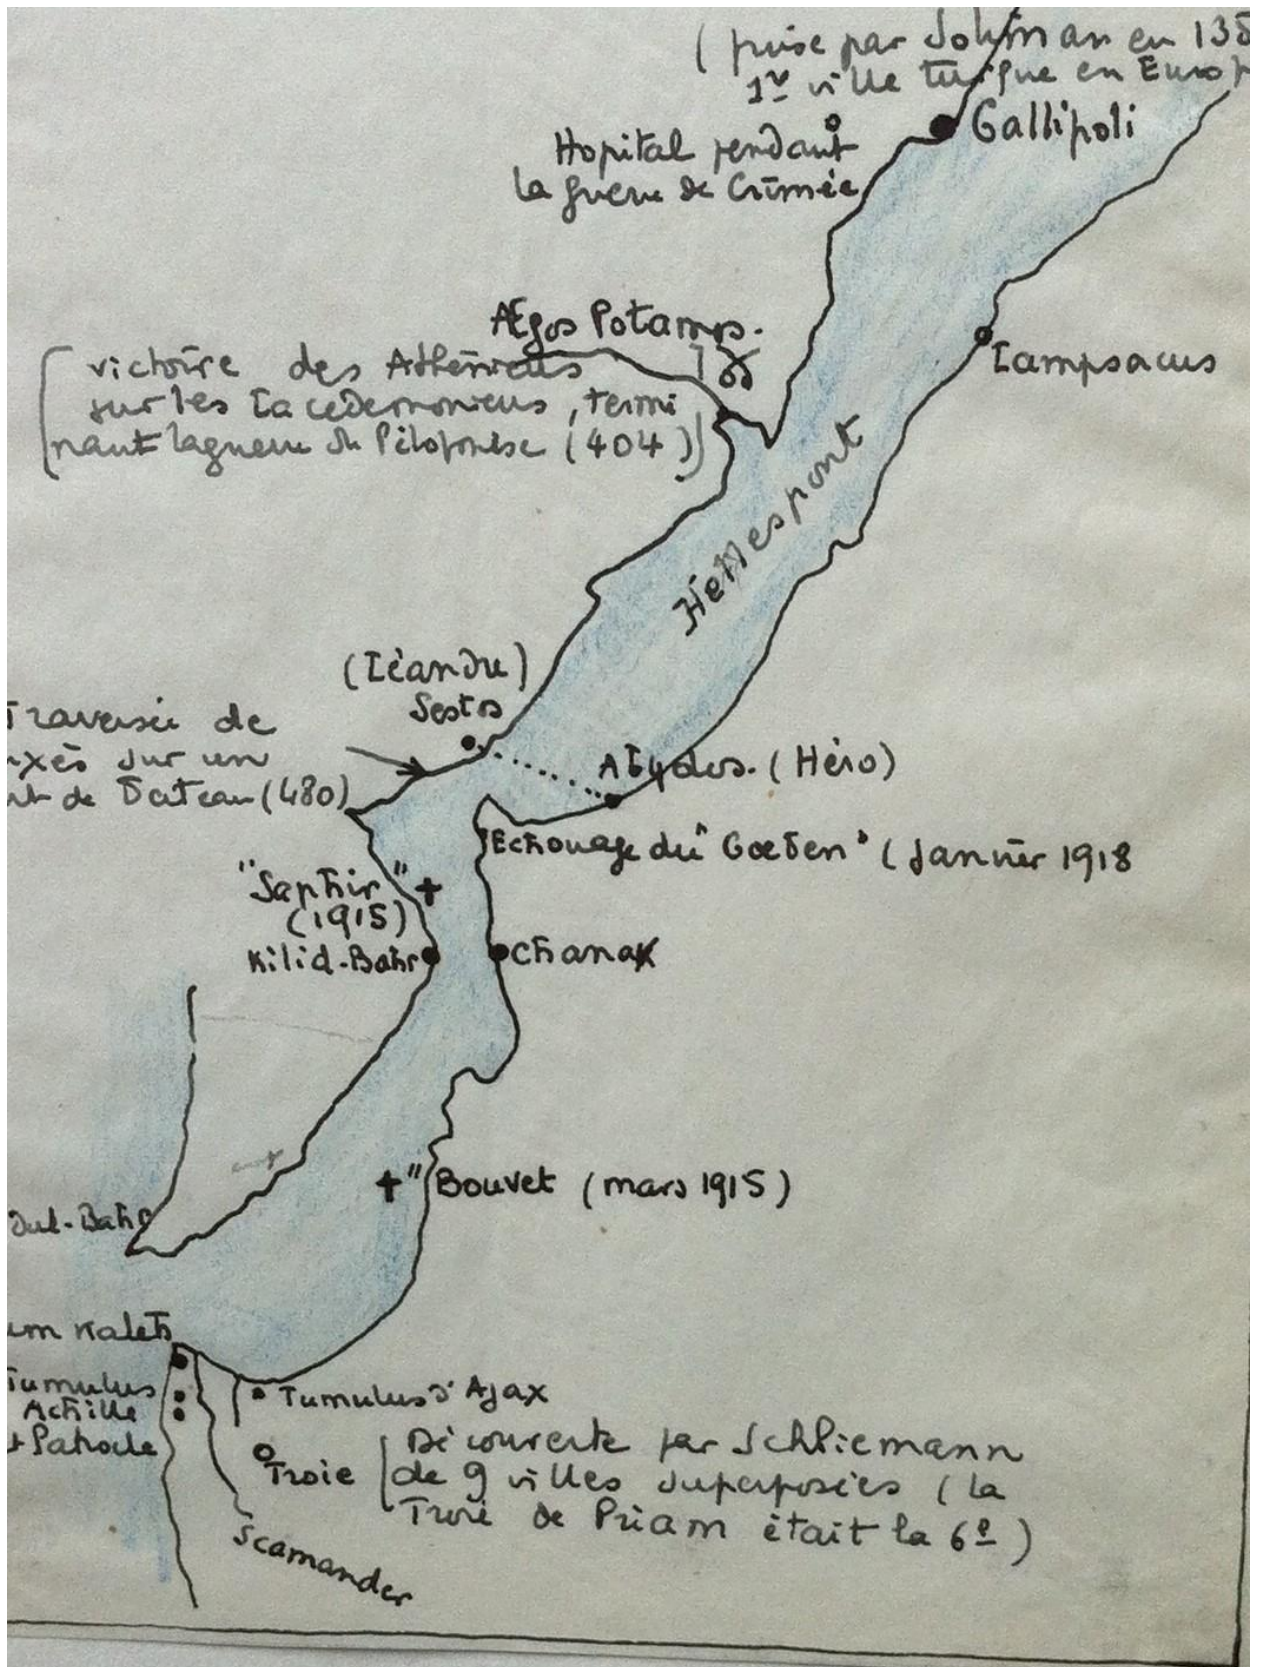 (prise par Soliman en 135
1re ville turque en Europ
Gallipoli
Hopital pendant
la guerre de Crimée
Ægos Potamos.
victoire des Athéniens
sur les Lacedemoniens, termi
nant la guerre du Péloponèse (404)
Lampsacus
Hellespont
(Léandre)
Sestos
Traversée de
rxès sur un
nt de bateau (480)
Abydos. (Héro)
Echouage du "Gœben" (Janvier 1918
"Saphir"
(1915)
Kilid-Bahr
Chanak
"Bouvet (mars 1915)
dul-Bahr
um Kaleh
Tumulus
Achille
+ Patrocle
Tumulus d'Ajax
Troie
Découverte par Schliemann
de 9 villes superposées (la
Troie de Priam était la 6e)
Scamander